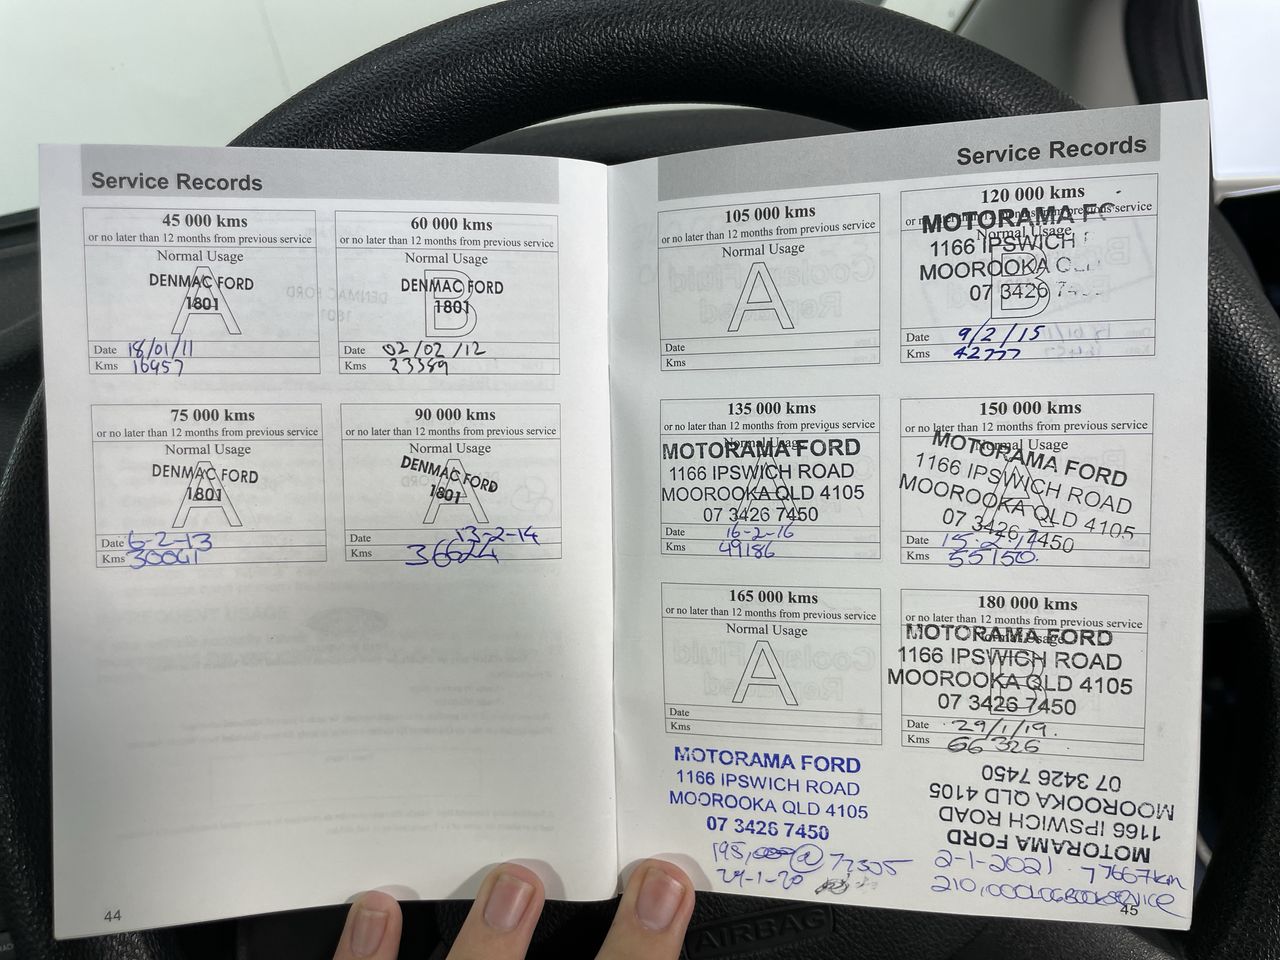 Service Records
45 000 kms
or no later than 12 months from previous service
Normal Usage
A
DENMAC FORD
1801
Date 18/01/11
Kms 16457
60 000 kms
or no later than 12 months from previous service
Normal Usage
B
DENMAC FORD
1801
Date 02/02/12
Kms 23389
75 000 kms
or no later than 12 months from previous service
Normal Usage
A
DENMAC FORD
1801
Date 6-2-13
Kms 30041
90 000 kms
or no later than 12 months from previous service
Normal Usage
A
DENMAC FORD
1801
Date 13-2-14
Kms 36624
44
Service Records
105 000 kms
or no later than 12 months from previous service
Normal Usage
A
Date
Kms
120 000 kms
or no later than 12 months from previous service
Normal Usage
B
MOTORAMA
1166 IPSWICH
MOOROOKA
07 3426
Date 9/2/15
Kms 42777
135 000 kms
or no later than 12 months from previous service
Normal Usage
A
MOTORAMA FORD
1166 IPSWICH ROAD
MOOROOKA QLD 4105
07 3426 7450
Date 16-2-16
Kms 49186
150 000 kms
or no later than 12 months from previous service
Normal Usage
A
MOTORAMA FORD
1166 IPSWICH ROAD
MOOROOKA QLD 4105
07 3426 7450
Date 15-2-17
Kms 55150
165 000 kms
or no later than 12 months from previous service
Normal Usage
A
Date
Kms
180 000 kms
or no later than 12 months from previous service
Normal Usage
B
MOTORAMA FORD
1166 IPSWICH ROAD
MOOROOKA QLD 4105
07 3426 7450
Date 29/1/19.
Kms 66 326
MOTORAMA FORD
1166 IPSWICH ROAD
MOOROOKA QLD 4105
07 3426 7450
195,000 @ 77305
29-1-20
MOTORAMA FORD
1166 IPSWICH ROAD
MOOROOKA QLD 4105
07 3426 7450
2-1-2021 77667km
210,000 LOGBOOK SERVICE
45
AIRBAG